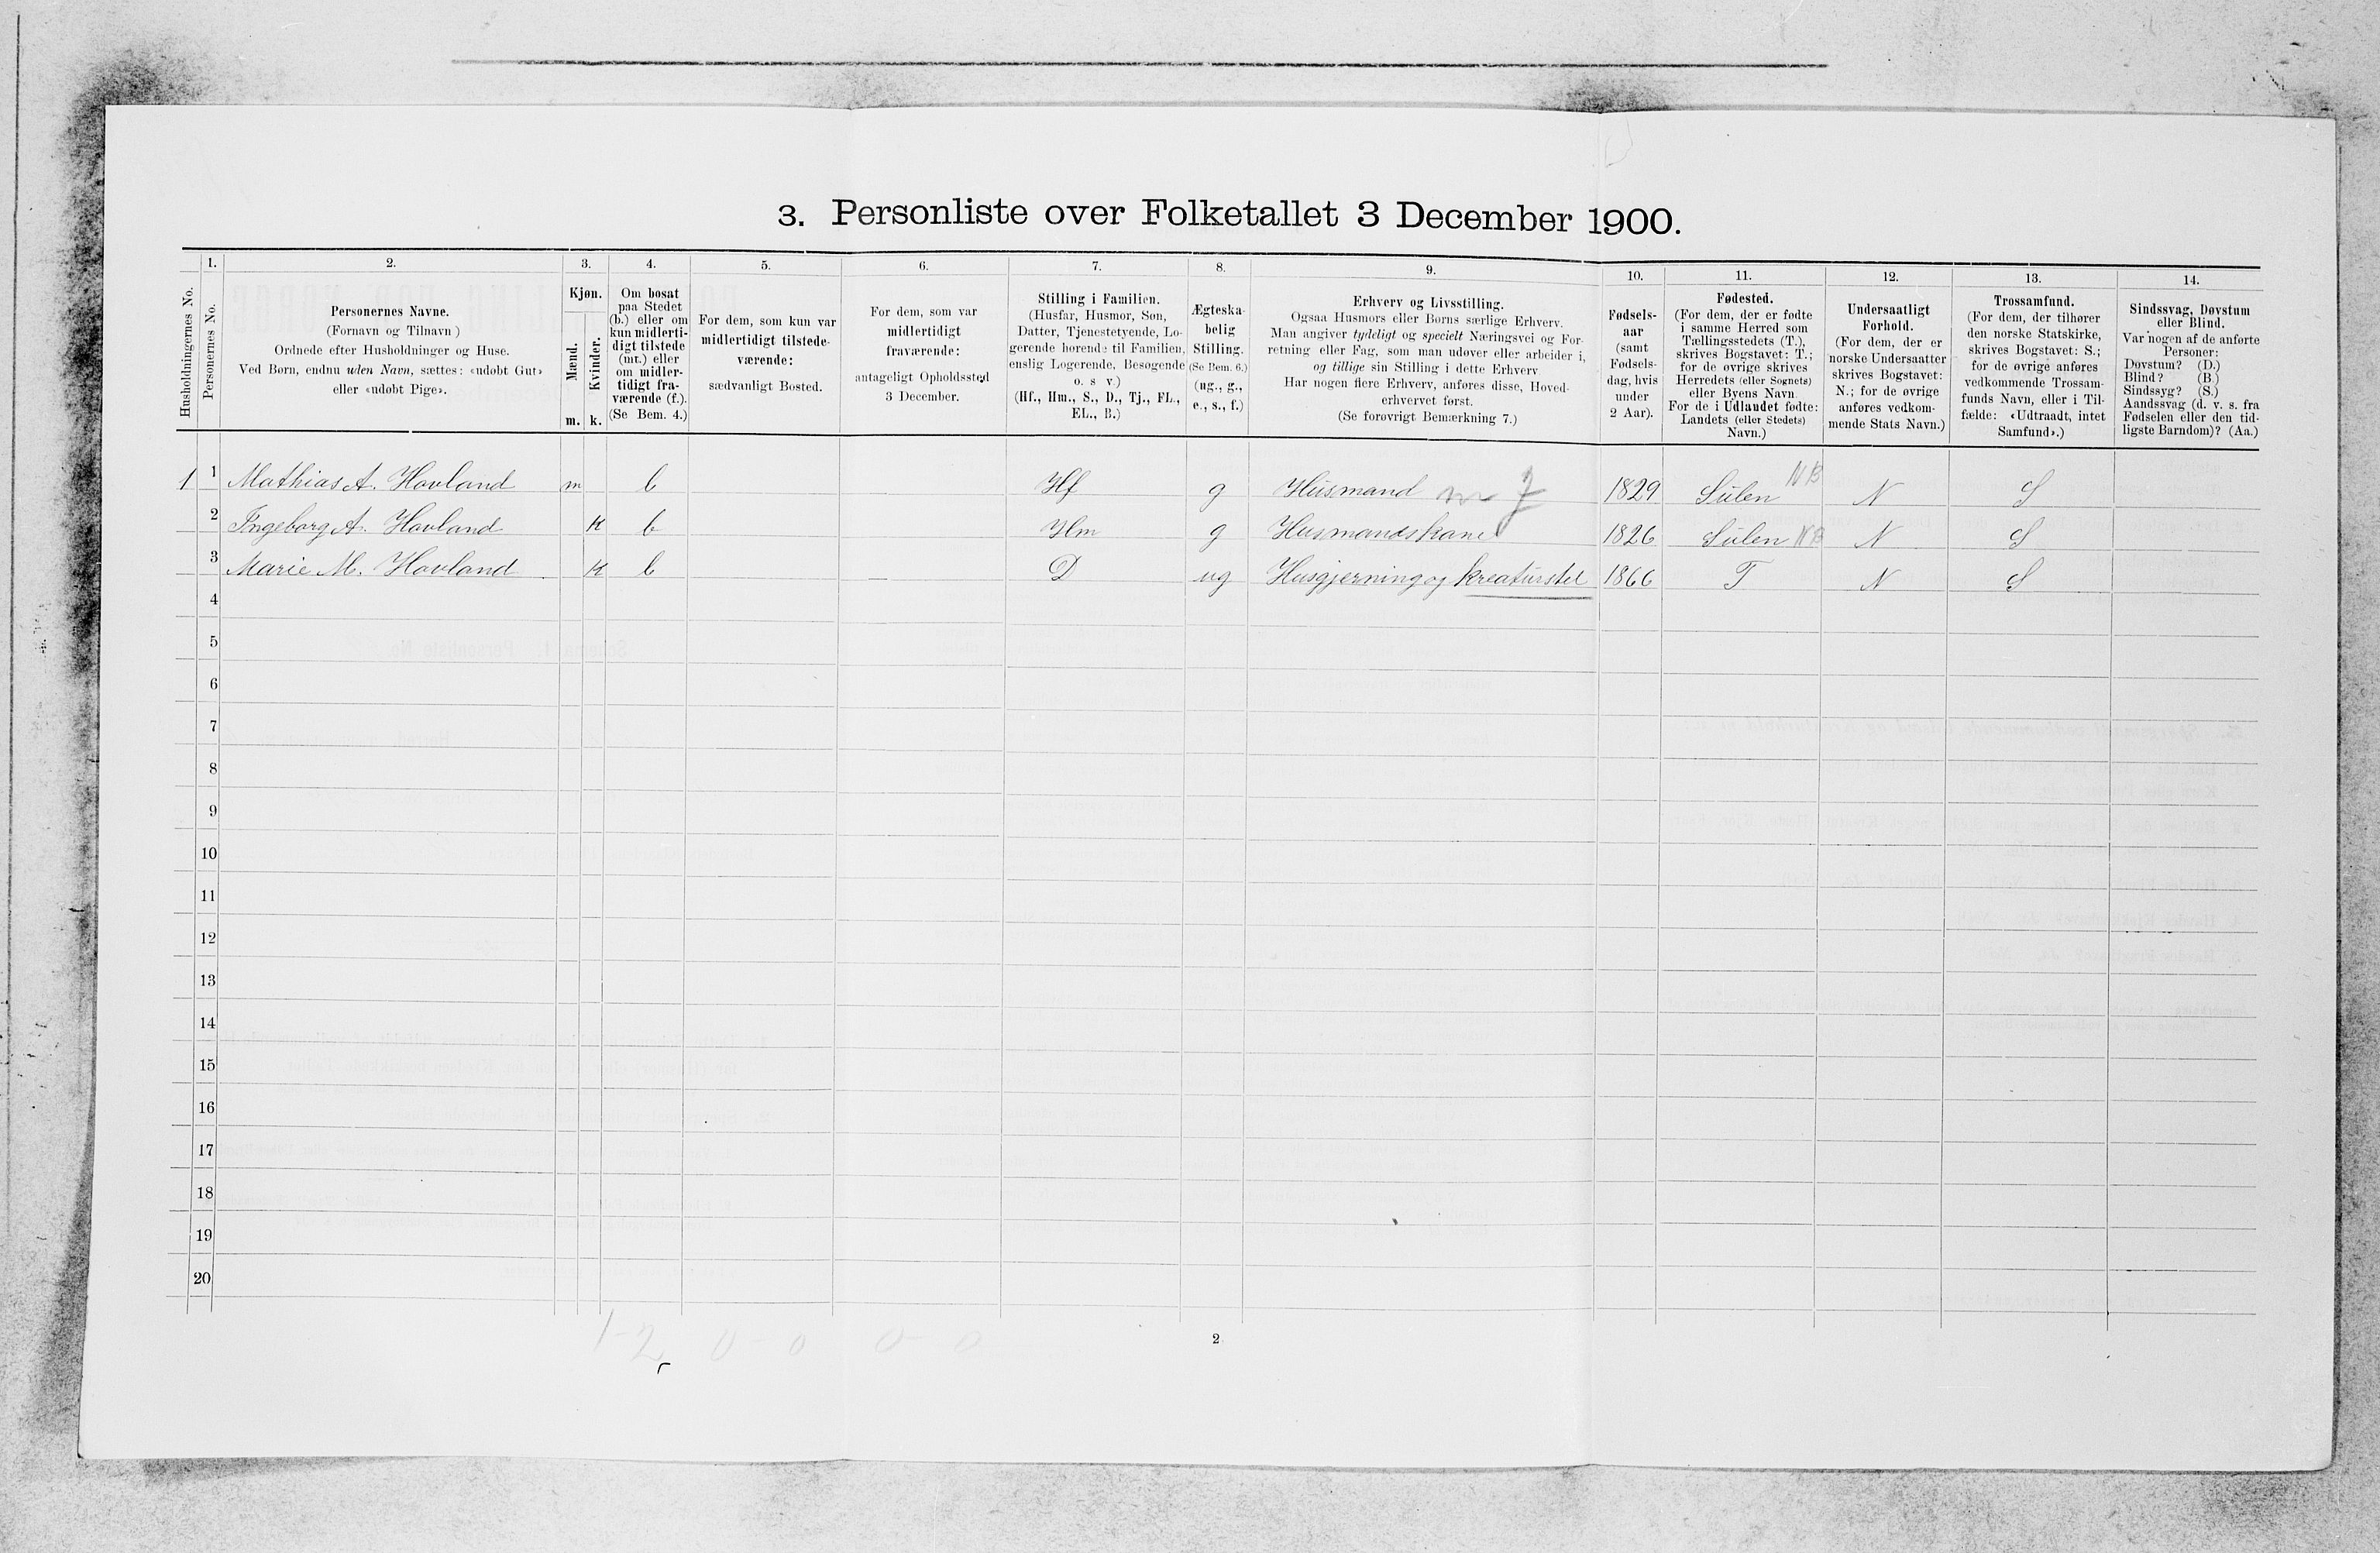 3. Personliste over Folketallet 3 December 1900.
1. 2. 3. 4. 5. 6. 7. 8. 9. 10. 11. 12. 13. 14.
Husholdningernes No.
Personernes No.
Personernes Navne.
(Fornavn og Tilnavn)
Ordnede efter Husholdninger og Huse.
Ved Børn, endnu uden Navn, sættes: «udøbt Gut»
eller «udøbt Pige».
Kjøn.
Mænd.
Kvinder.
m. k.
Om bosat
paa Stedet
(b.) eller om
kun midlerti-
digt tilstede
(mt.) eller
om midler-
tidigt fra-
værende (f.).
(Se Bem. 4.)
For dem, som kun var
midlertidigt tilstede-
værende:
sædvanligt Bosted.
For dem, som var
midlertidigt
fraværende:
antageligt Opholdssted
3 December.
Stilling i Familien.
(Husfar, Husmor, Søn,
Datter, Tjenestetyende, Lo-
gerende hørende til Familien,
enslig Logerende, Besøgende
o. s v.)
(Hf., Hm., S., D., Tj., FL.,
EL., B.)
Ægteska-
belig
Stilling.
(Se Bem. 6.)
(ug., g.,
e., s., f.)
Erhverv og Livsstilling.
Ogsaa Husmors eller Børns særlige Erhverv.
Man angiver tydeligt og specielt Næringsvei og For-
retning eller Fag, som man udøver eller arbeider i,
og tillige sin Stilling i dette Erhverv
Har nogen flere Erhverv, anføres disse, Hoved-
erhvervet først.
(Se forøvrigt Bemærkning 7.)
Fødsels-
aar
(samt
Fødsels-
dag, hvis
under
2 Aar).
Fødested.
(For dem, der er fødte
i samme Herred som
Tællingsstedets (T.),
skrives Bogstavet: T.;
for de øvrige skrives
Herredets (eller Sognets)
eller Byens Navn.
For de i Udlandet fødte:
Landets (eller Stedets)
Navn.)
Undersaatligt
Forhold.
(For dem, der er
norske Undersaatter
skrives Bogstavet:
N.; for de øvrige
anføres vedkom-
mende Stats Navn.)
Trossamfund.
(For dem, der tilhører
den norske Statskirke,
skrives Bogstavet: S.;
for de øvrige anføres
vedkommende Trossam-
funds Navn, eller i Til-
fælde: «Udtraadt, intet
Samfund».)
Sindssvag, Døvstum
eller Blind.
Var nogen af de anførte
Personer:
Døvstum? (D.)
Blind? (B.)
Sindssyg? (S.)
Aandssvag (d. v. s. fra
Fødselen eller den tid-
ligste Barndom)? (Aa.)
1 1 Mathias A. Hovland m b Hf g Husmand m J 1829 Sulen NB N S
2 Ingeborg A. Hovland k b Hm g Husmandskone 1826 Sulen NB N S
3 Marie M. Hovland k b D ug Husgjerning og kreaturstel 1866 T N S
4
5
6
7
8
9
10
11
12
13
14
15
16
17
18
19
20
1-2 0-0 0-0
2